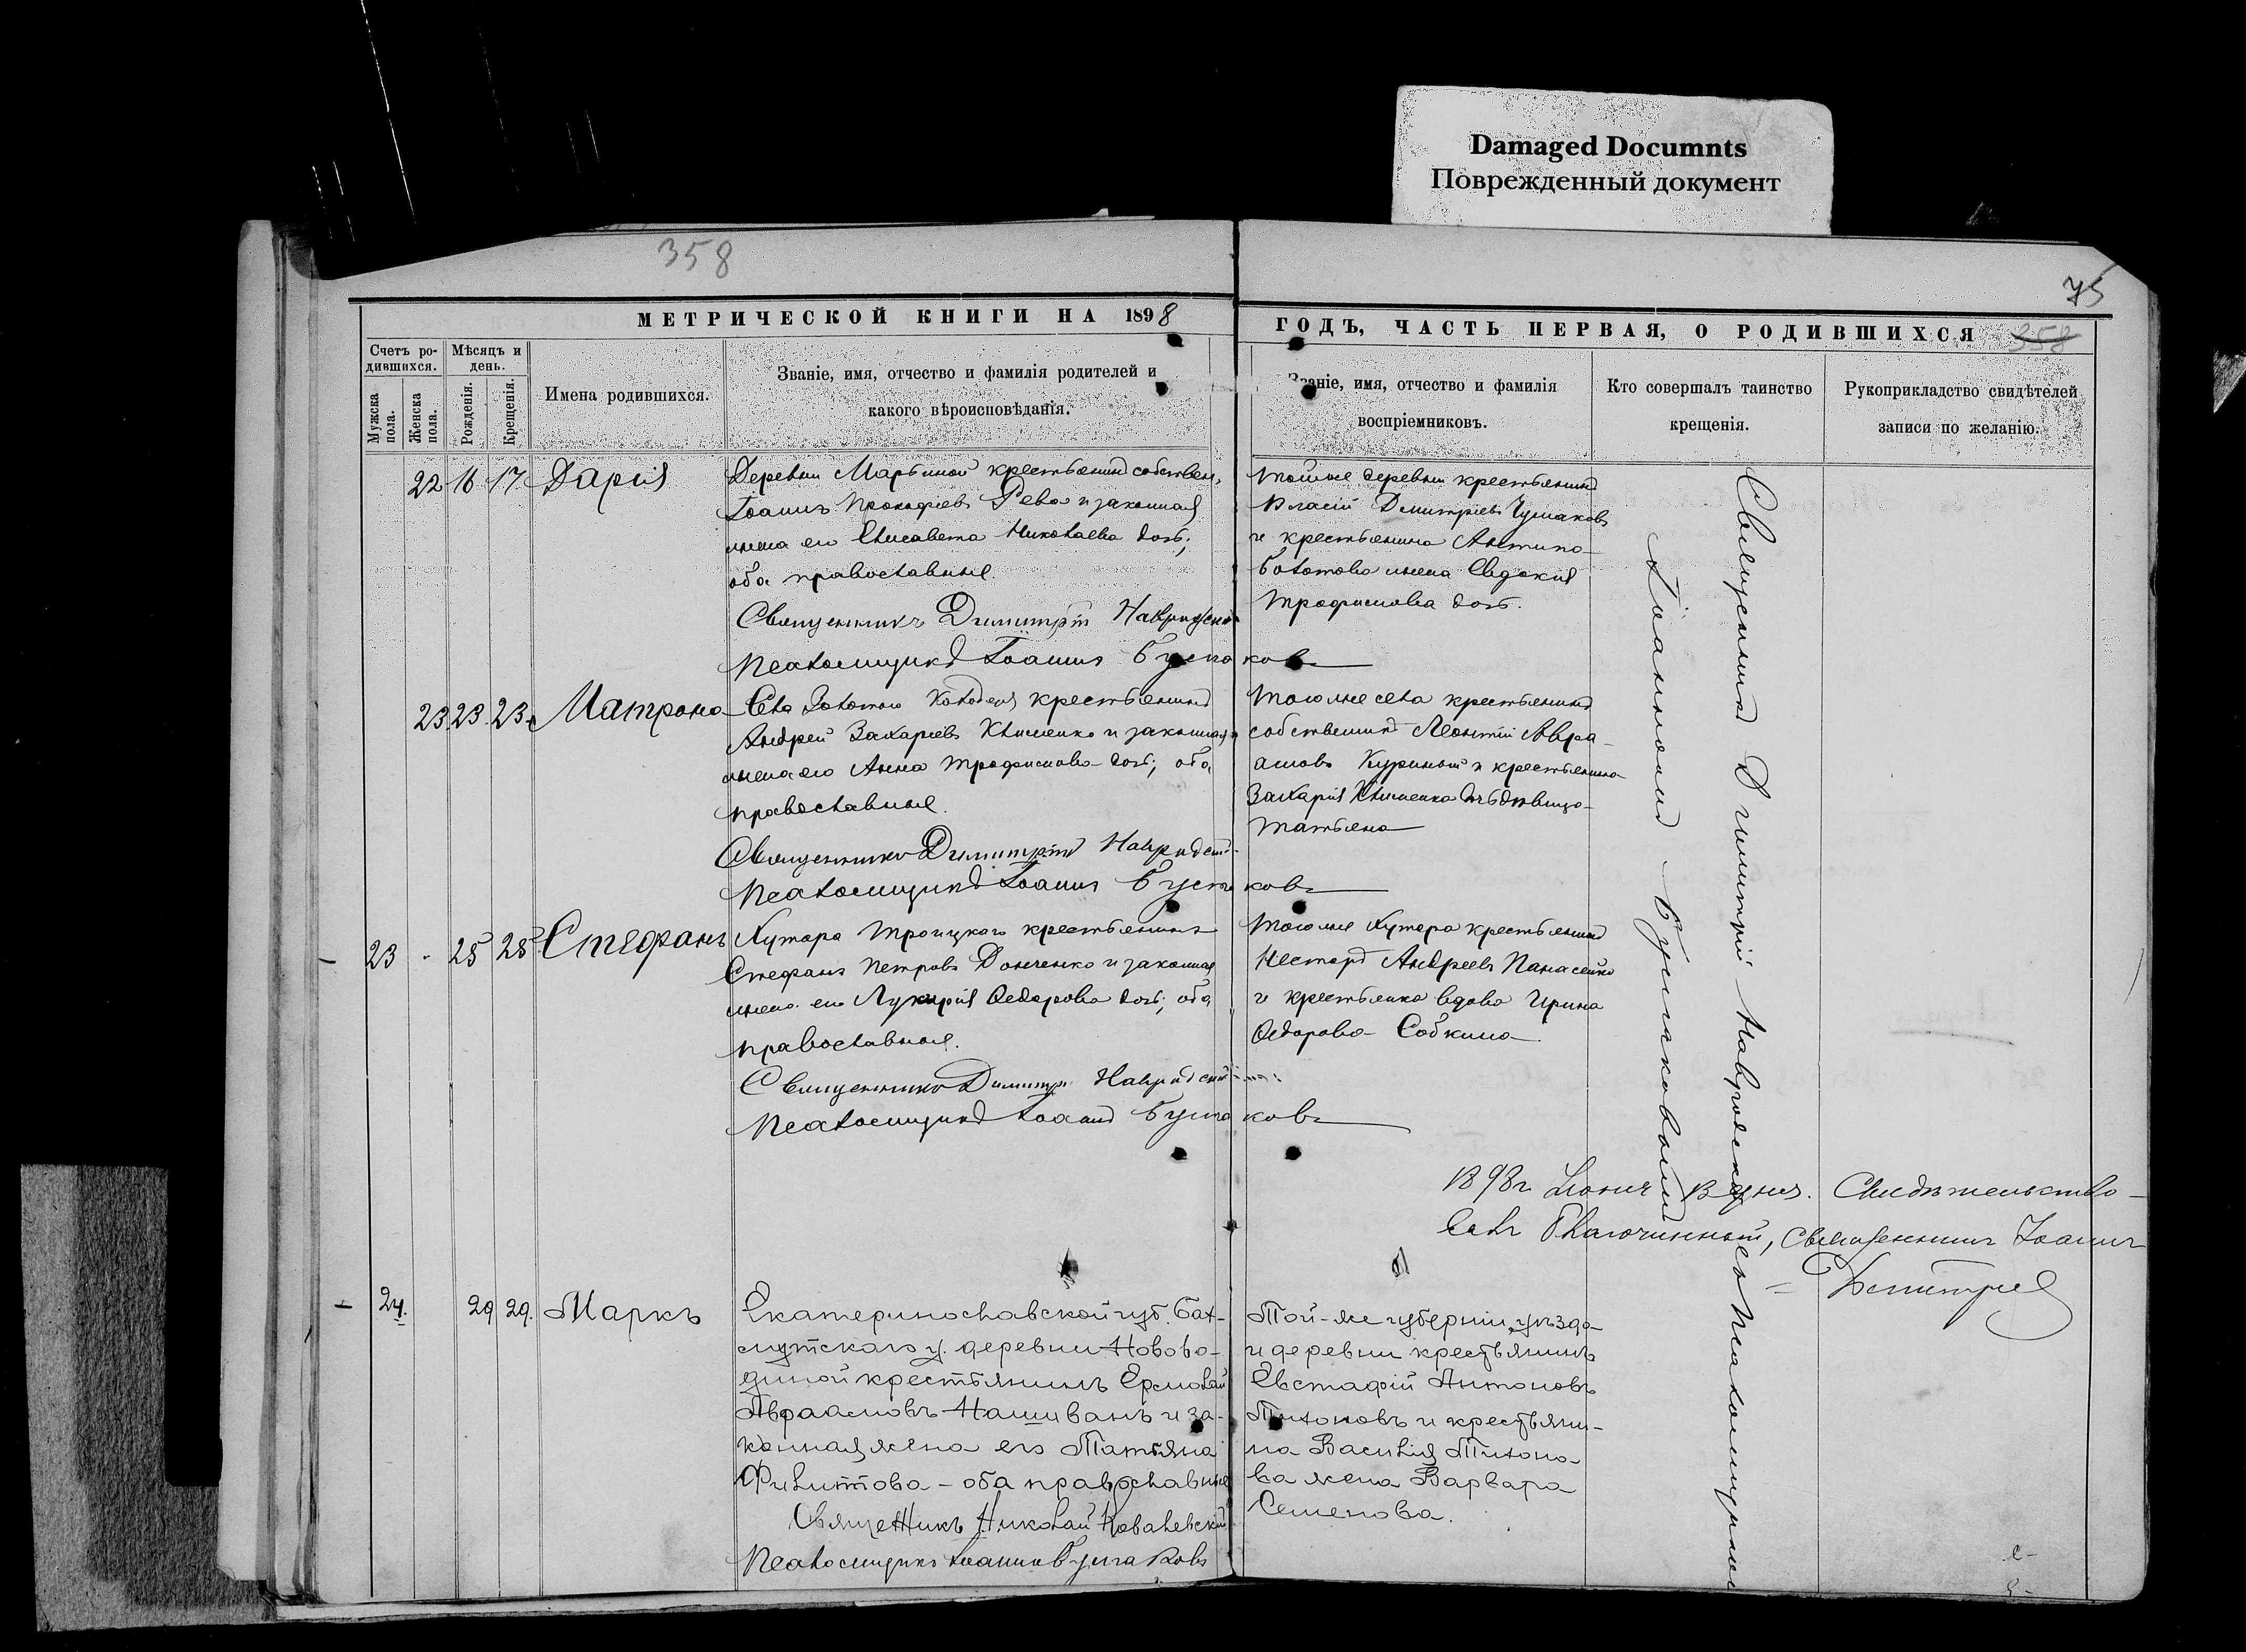 Damaged Documnts
Поврежденный документ
358
75
МЕТРИЧЕСКОЙ КНИГИ НА 1898
ГОДЪ, ЧАСТЬ ПЕРВАЯ, О РОДИВШИХСЯ 358
Счетъ ро-
дившихся.
Мужска
пола.
Женска
пола.
Мѣсяцъ и
день.
Рожденія.
Крещенія.
Имена родившихся.
Званіе, имя, отчество и фамилія родителей и
какого вѣроисповѣданія.
Званіе, имя, отчество и фамилія
воспріемниковъ.
Кто совершалъ таинство
крещенія.
Рукоприкладство свидѣтелей
записи по желанію.
22 16 17 Дарія
Деревни Марьиной крестьянинъ собствен.
Іоаннъ Прокофіевъ Рева и законная
жена его Елисавета Николаева дочь;
оба православные.
Священникъ Димитрій
Псаломщикъ Іоаннъ Бугмаковъ
Тойже деревни крестьянинъ
Власій Димитріевъ Чумаковъ
и крестьянина
жена Евдокія
Трофимова дочь.
23 23 23 Матрона
Села Золотого Колодезя крестьянинъ
Андрей Захаріевъ Клименко и законная
жена его Анна Трофимова дочь; оба
православные.
Священникъ Димитрій
Псаломщикъ Іоаннъ
Того же села крестьянинъ
собственникъ Леонтій Авра-
амовъ и крестьянина
Захарія Клименка дѣвица
Татьяна
23 25 25 Стефанъ
Хутора Троицкаго крестьянинъ
Стефанъ Петровъ Донченко и законная
жена его Лукирія Федорова дочь; оба
православные.
Священникъ Димитрій
Псаломщикъ Іоаннъ
Того же хутора крестьянинъ
Несторъ Андреевъ Панасейко
и крестьянка вдова Ирина
Федорова Собкина
Священникъ Димитрій съ Псаломщикомъ
Іоанномъ
1898г Іюня дня. Свидѣтельство-
валъ Благочинный, Священникъ Іоаннъ
Дмитріев
24. 29 29. Маркъ
Екатеринославской губ. Бах-
мутскаго у. деревни Нововo-
дяной крестьянинъ Ермолай
Авраамовъ Нашиванъ и за-
конная жена его Татьяна
Филиппова - оба православные
Священникъ Николай Ковалевскій
Псаломщикъ Іоаннъ
Той-же губерніи, уѣзда
и деревни крестьянинъ
Евстафій Антоновъ
Тихоновъ и крестьяни-
на Василія Тихоно-
ва жена Варвара
Семенова.